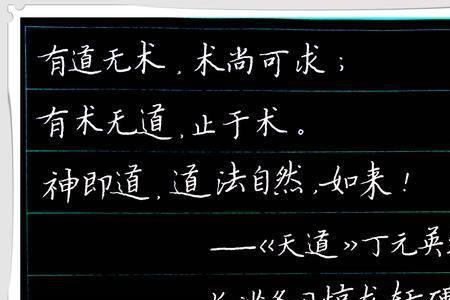 有道无术，术尚可求；
有术无道，止于术。
神即道，道法自然，如来！
——《天道》丁元英